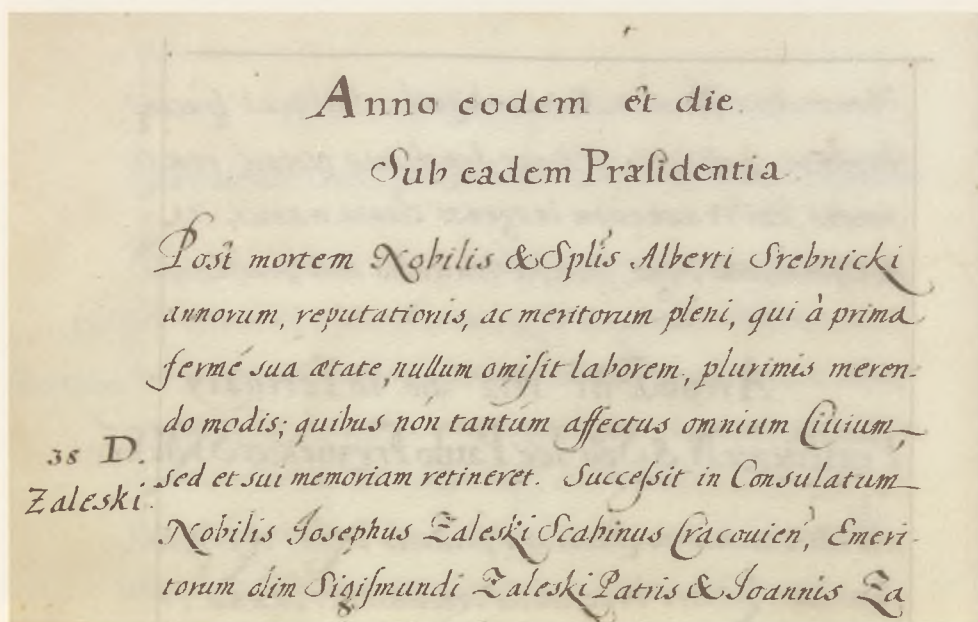 Anno eodem et die.
Sub eadem Præsidentia
Post mortem Nobilis & Splis Alberti Srebnicki
annorum, reputationis, ac meritorum pleni, qui à prima
fermé sua ætate, nullum omiſit laborem, plurimis meren-
do modis; quibus non tantum affectus omnium Ciuium,
sed et sui memoriam retineret. Succeſsit in Consulatum
38 D.
Zaleski.
Nobilis Josephus Zaleski Scabinus Cracouien, Emeri-
torum olim Sigiſmundi Zaleski Patris & Joannis Za